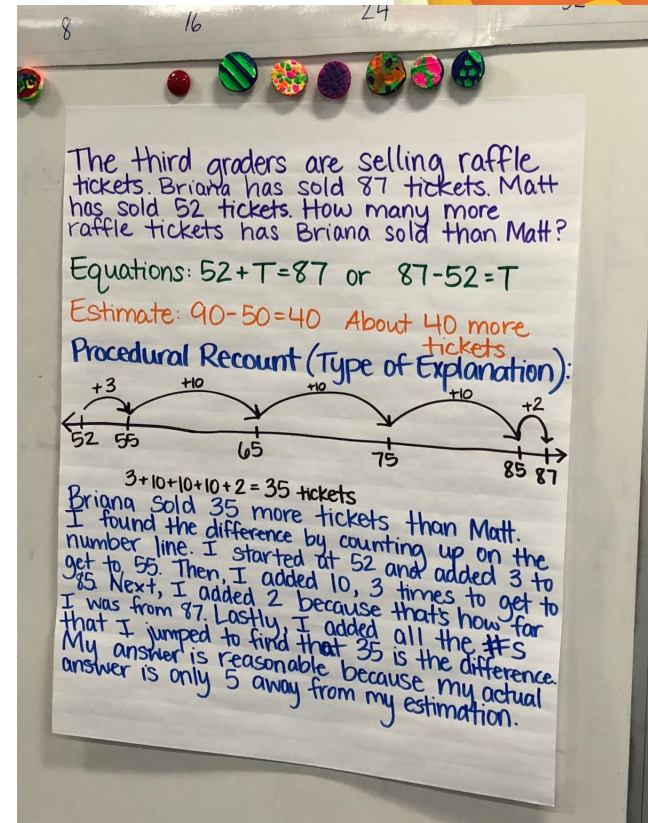 8 16 24
The third graders are selling raffle
tickets. Briana has sold 87 tickets. Matt
has sold 52 tickets. How many more
raffle tickets has Briana sold than Matt?
Equations: 52+T=87 or 87-52=T
Estimate: 90-50=40 About 40 more
tickets
Procedural Recount (Type of Explanation):
+3 +10 +10 +10 +2
52 55 65 75 85 87
3+10+10+10+2=35 tickets
Briana sold 35 more tickets than Matt.
I found the difference by counting up on the
number line. I started at 52 and added 3 to
get to 55. Then, I added 10, 3 times to get to
85. Next, I added 2 because that's how far
I was from 87. Lastly, I added all the #s
that I jumped to find that 35 is the difference.
My answer is reasonable because my actual
answer is only 5 away from my estimation.